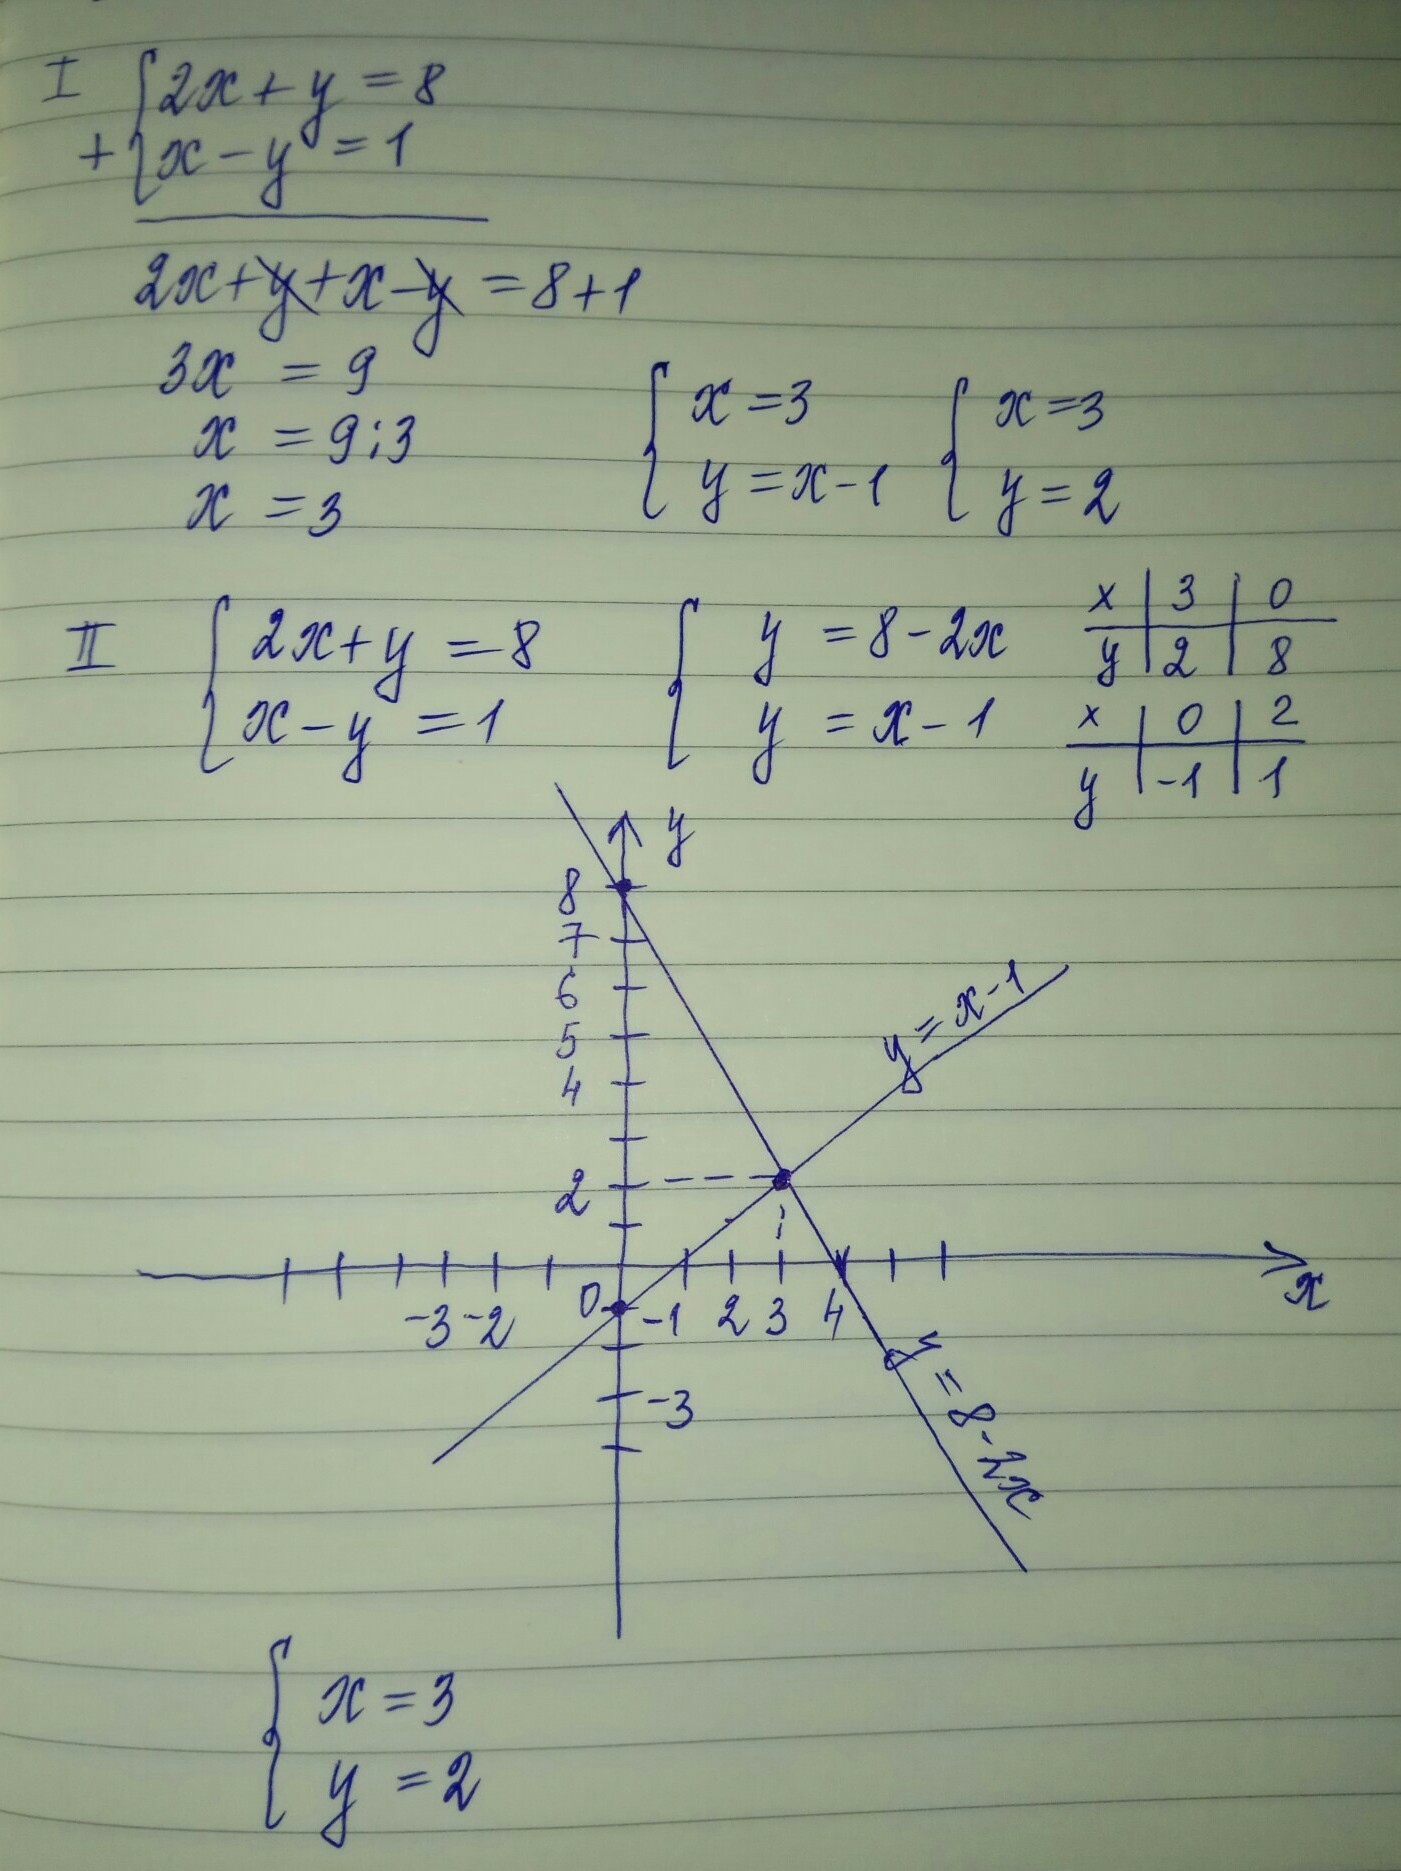 I { 2x + y = 8
+ { x - y = 1
2x + y + x - y = 8 + 1
3x = 9
x = 9 : 3
x = 3
{ x = 3
y = x - 1
{ x = 3
y = 2
II { 2x + y = 8
x - y = 1
{ y = 8 - 2x
y = x - 1
x | 3 | 0
y | 2 | 8
x | 0 | 2
y | -1 | 1
y
8
7
6
5
4
2
y = x - 1
0
-3 -2 -1 2 3 4 x
-3
y = 8 - 2x
{ x = 3
y = 2